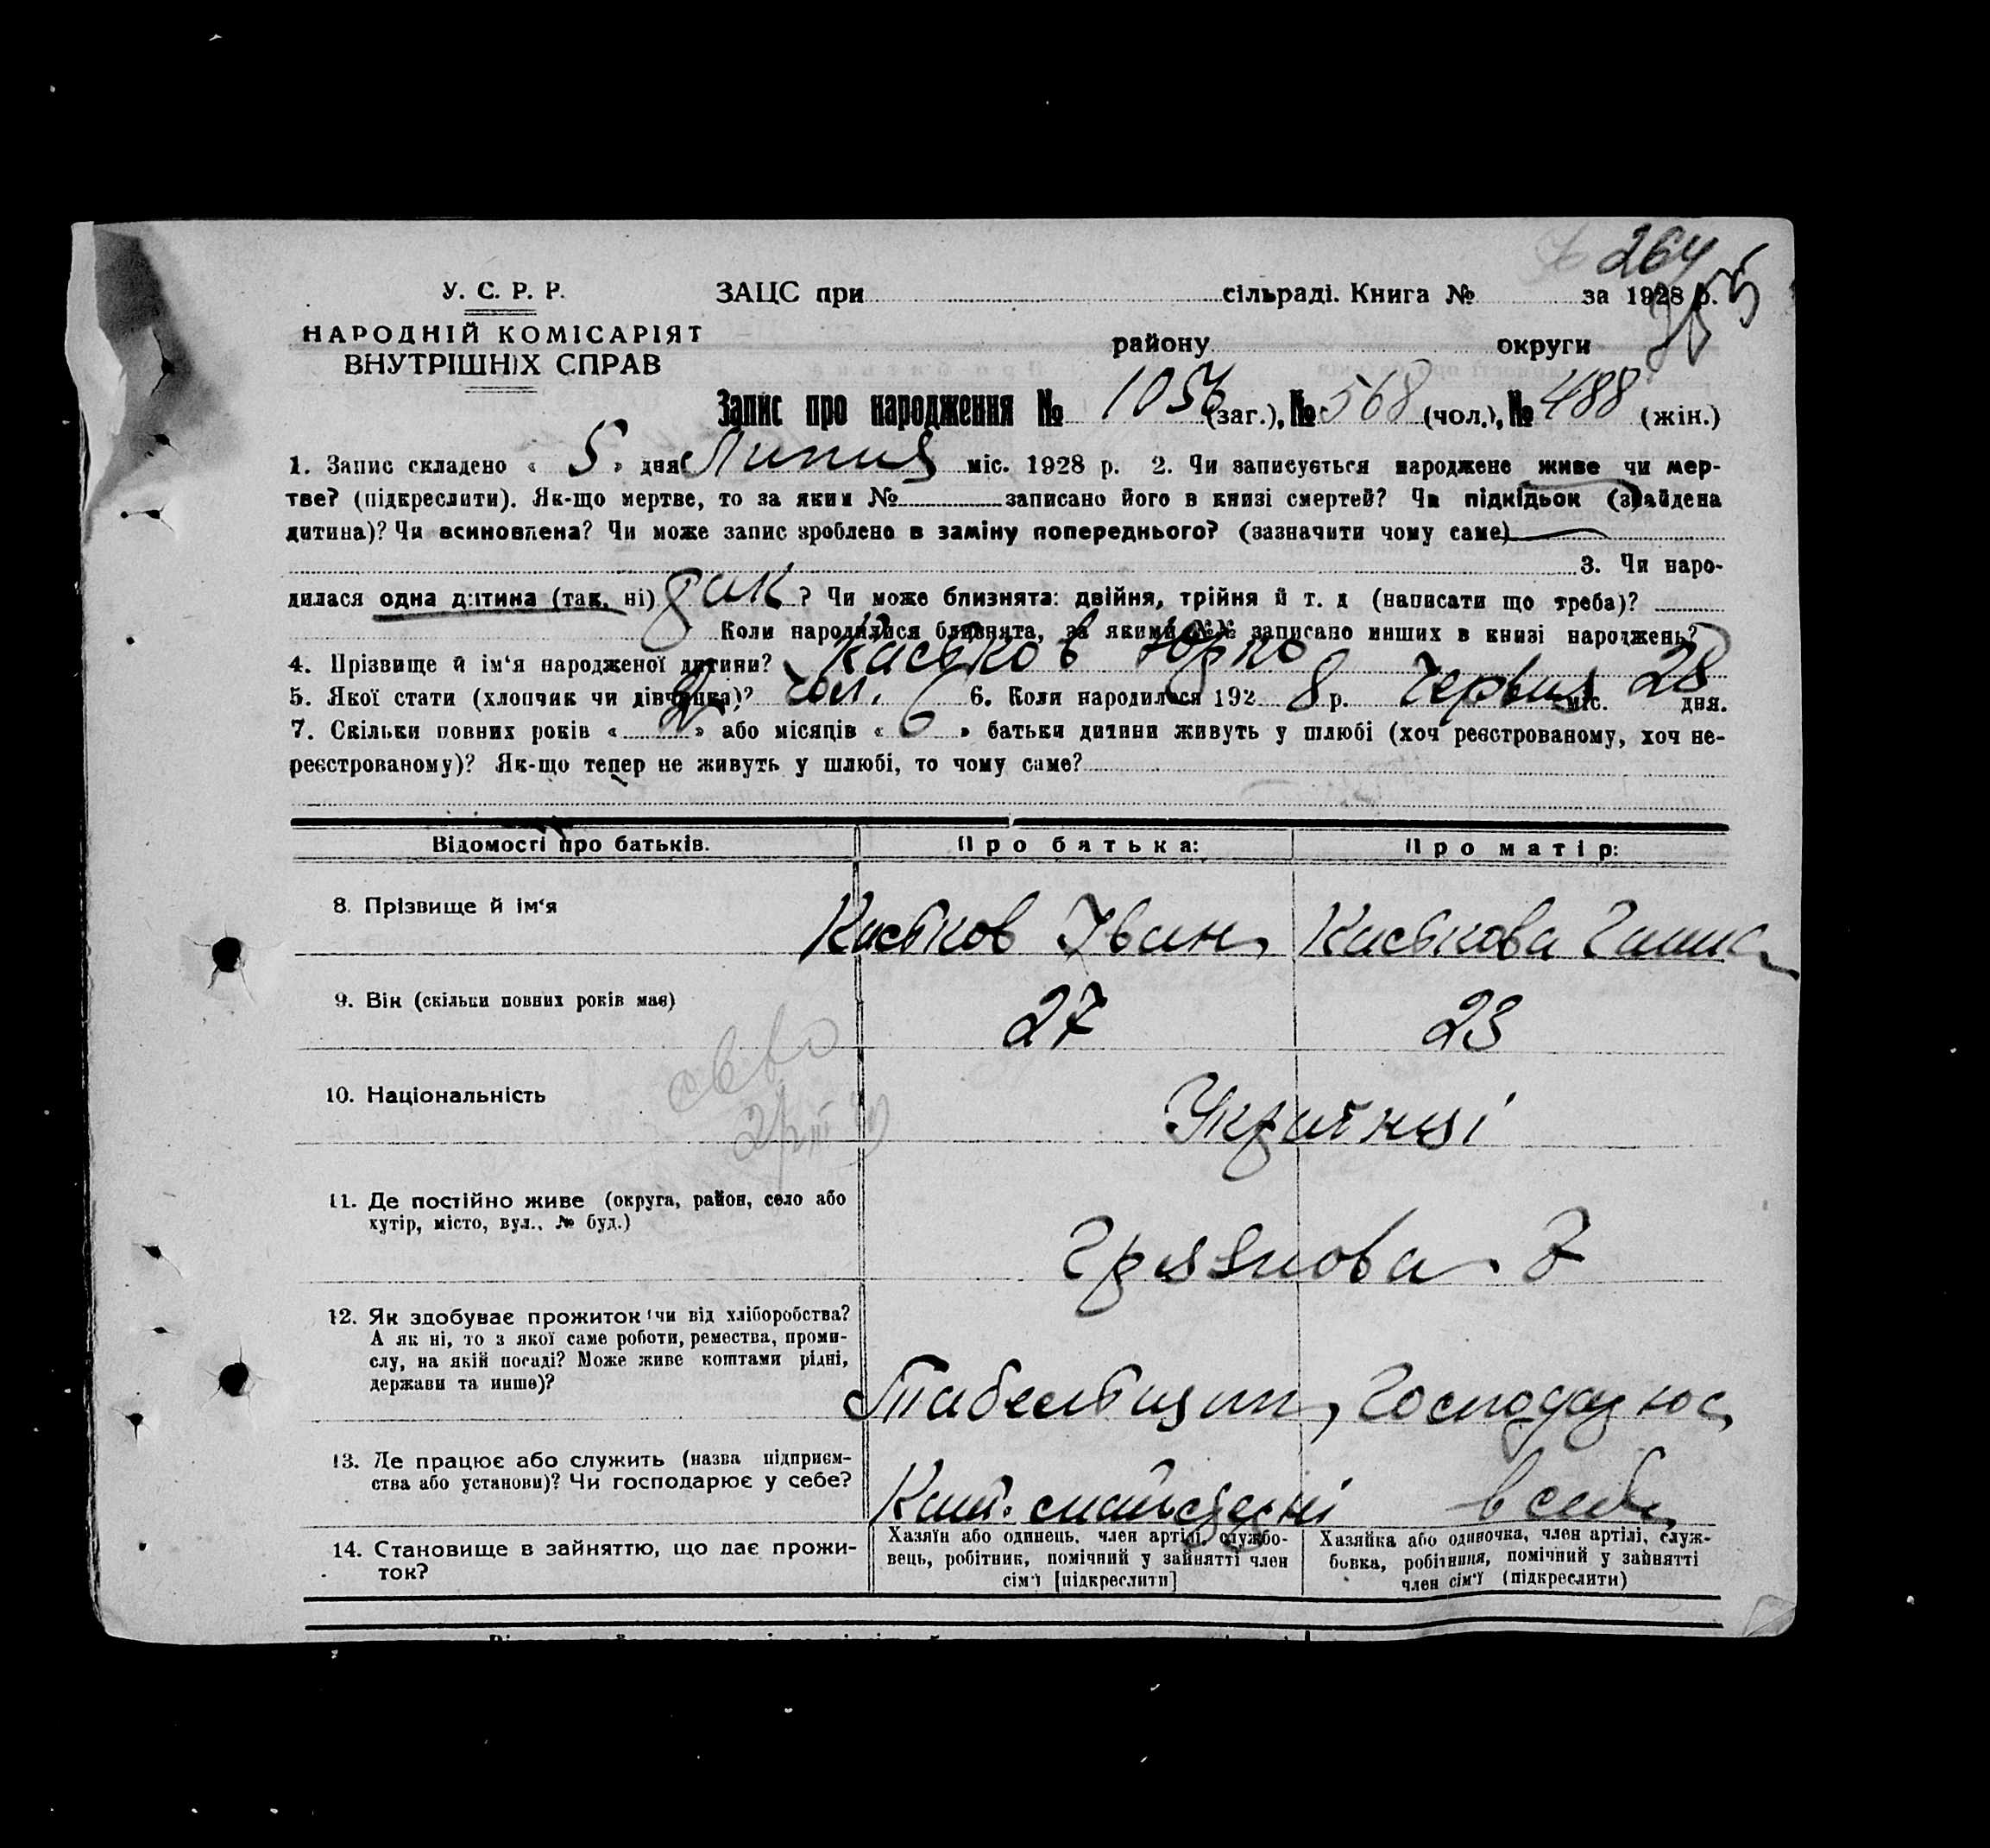 264
У. С. Р. Р.
ЗАЦС при сільраді. Книга № за 1928 р.
НАРОДНІЙ КОМІСАРІЯТ
ВНУТРІШНІХ СПРАВ
району округи
Запис про народження № 1056 (заг.), № 568 (чол.), № 488 (жін.)
1. Запис складено « 5 » дня Липня міс. 1928 р. 2. Чи записується народжене живе чи мер-
тве? (підкреслити). Як-що мертве, то за яким № записано його в книзі смертей? Чи підкідьок (знайдена
дитина)? Чи всиновлена? Чи може запис зроблено в заміну попереднього? (зазначити чому саме)
3. Чи наро-
дилася одна дитина (так, ні) так ? Чи може близнята: двійня, трійня й т. д (написати що треба)?
Коли народилися близнята, за якими №№ записано инших в книзі народжень?
4. Прізвище й ім'я народженої дитини? Каськов Юрко
5. Якої стати (хлопчик чи дівчинка)? чол. 6. Коли народилася 1928 р. Червня міс. 28 дня.
7. Скільки повних років « 2 » або місяців « 6 » батьки дитини живуть у шлюбі (хоч реєстрованому, хоч не-
реєстрованому)? Як-що тепер не живуть у шлюбі, то чому саме?
Відомості про батьків. Про батька: Про матір:
8. Прізвище й ім'я Каськов Іван Каськова Ганна
9. Вік (скільки повних років має) 27 23
10. Національність Українці
11. Де постійно живе (округа, район, село або
хутір, місто, вул., № буд.)
Грязнова 7
12. Як здобуває прожиток чи від хліборобства?
А як ні, то з якої саме роботи, ремества, проми-
слу, на якій посаді? Може живе коштами рідні,
держави та инше)?
Табельщик, Господарює
13. Де працює або служить (назва підприєм-
ства або установи)? Чи господарює у себе?
в себе
14. Становище в зайняттю, що дає прожи-
ток?
Хазяїн або одинець, член артілі, службо-
вець, робітник, помічний у зайнятті член
сім'ї [підкреслити]
Хазяйка або одиночка, член артілі, служ-
бовка, робітниця, помічний у зайнятті
член сім'ї (підкреслити)